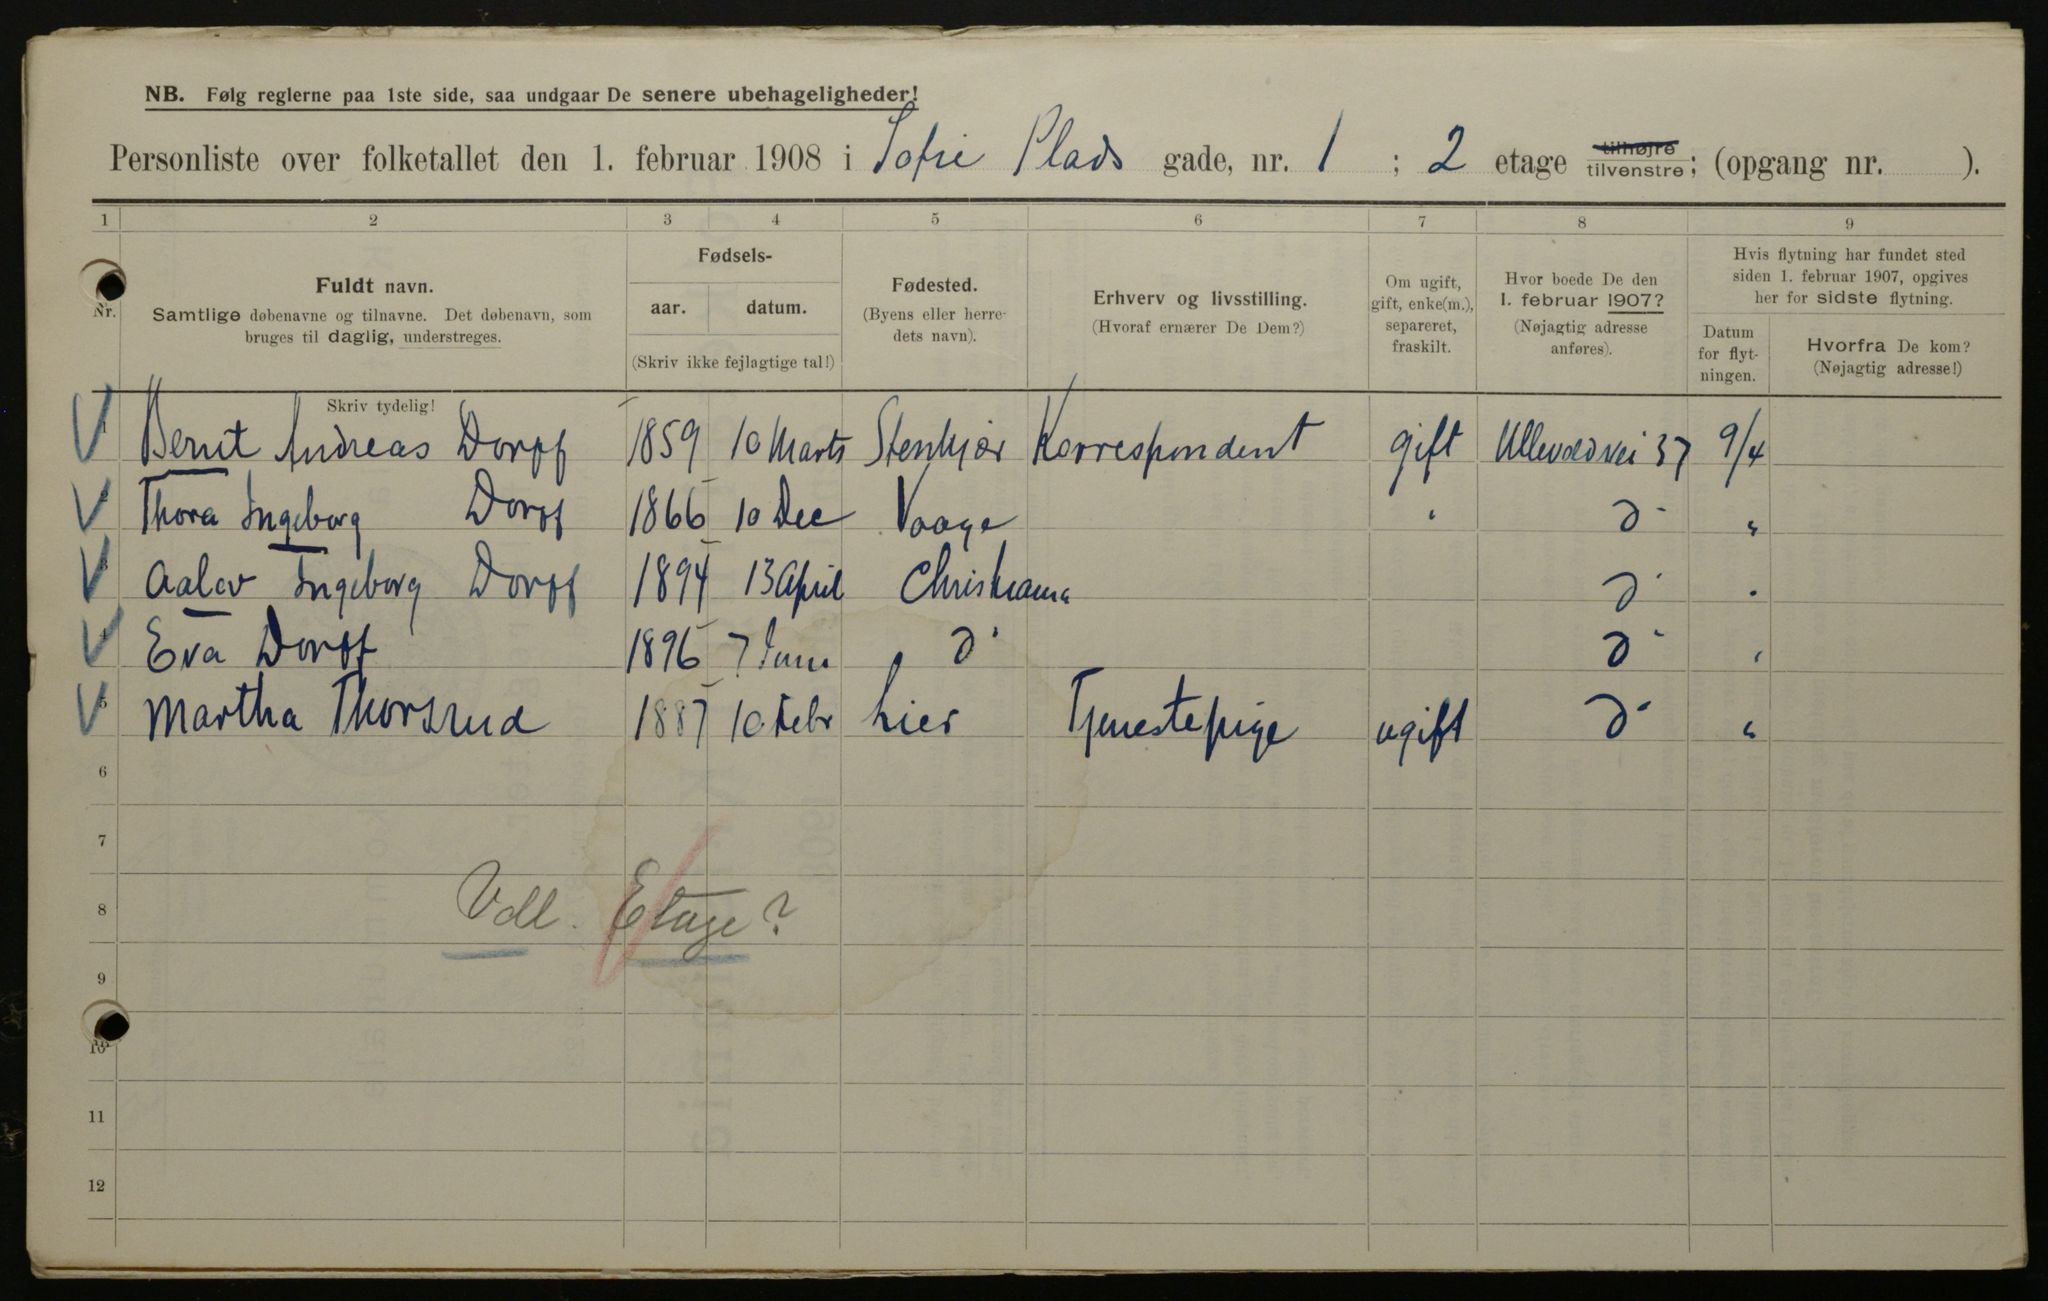 NB. Følg reglerne paa 1ste side, saa undgaar De senere ubehageligheder!
Personliste over folketallet den 1. februar 1908 i Sofie Plads gade, nr. 1 ; 2 etage tilhøjre tilvenstre; (opgang nr. ).
1 2 3 4 5 6 7 8 9
Nr.
Fuldt navn.
Samtlige døbenavne og tilnavne. Det døbenavn, som
bruges til daglig, understreges.
Skriv tydelig!
Fødsels-
aar. datum.
(Skriv ikke fejlagtige tal!)
Fødested.
(Byens eller herre-
dets navn).
Erhverv og livsstilling.
(Hvoraf ernærer De Dem?)
Om ugift,
gift, enke(m.),
separeret,
fraskilt.
Hvor boede De den
1. februar 1907?
(Nøjagtig adresse
anføres).
Hvis flytning har fundet sted
siden 1. februar 1907, opgives
her for sidste flytning.
Datum
for flyt-
ningen.
Hvorfra De kom?
(Nøjagtig adresse!)
Bernt Andreas Dorff 1859 10 Marts Stenkjær Korrespondent gift Ullevoldsvei 37 9/4
Thora Ingeborg Dorff 1866 10 Dec Vaage " d° "
Aalov Ingeborg Dorff 1894 13 April Christiania d° "
Eva Dorff 1896 7 Juni d° d° "
5 Martha Thorsrud 1887 10 Febr Lier Tjenestepige ugift d° "
6
7
8 Vdl. Etage?
9
10
11
12